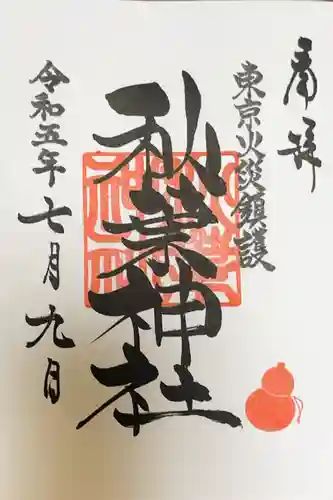 奉拝
東京火災鎮護
秋葉神社
令和五年七月九日